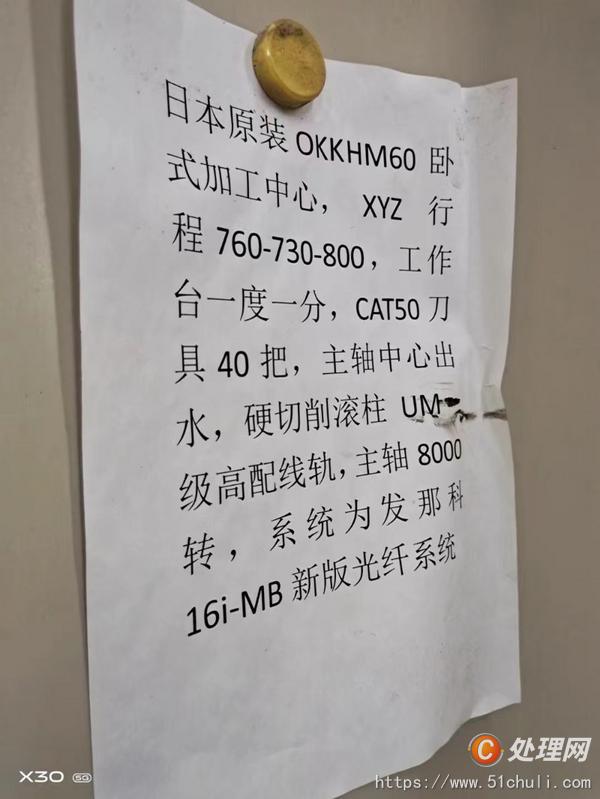 日本原装OKKHM60 卧
式加工中心， XYZ 行
程760-730-800，工作
台一度一分，CAT50刀
具40把，主轴中心出
水，硬切削滚柱 UM
级高配线轨，主轴8000
转，系统为发那科
16i-MB新版光纤系统
C 处理网
X30 5G
https://www.51chuli.com